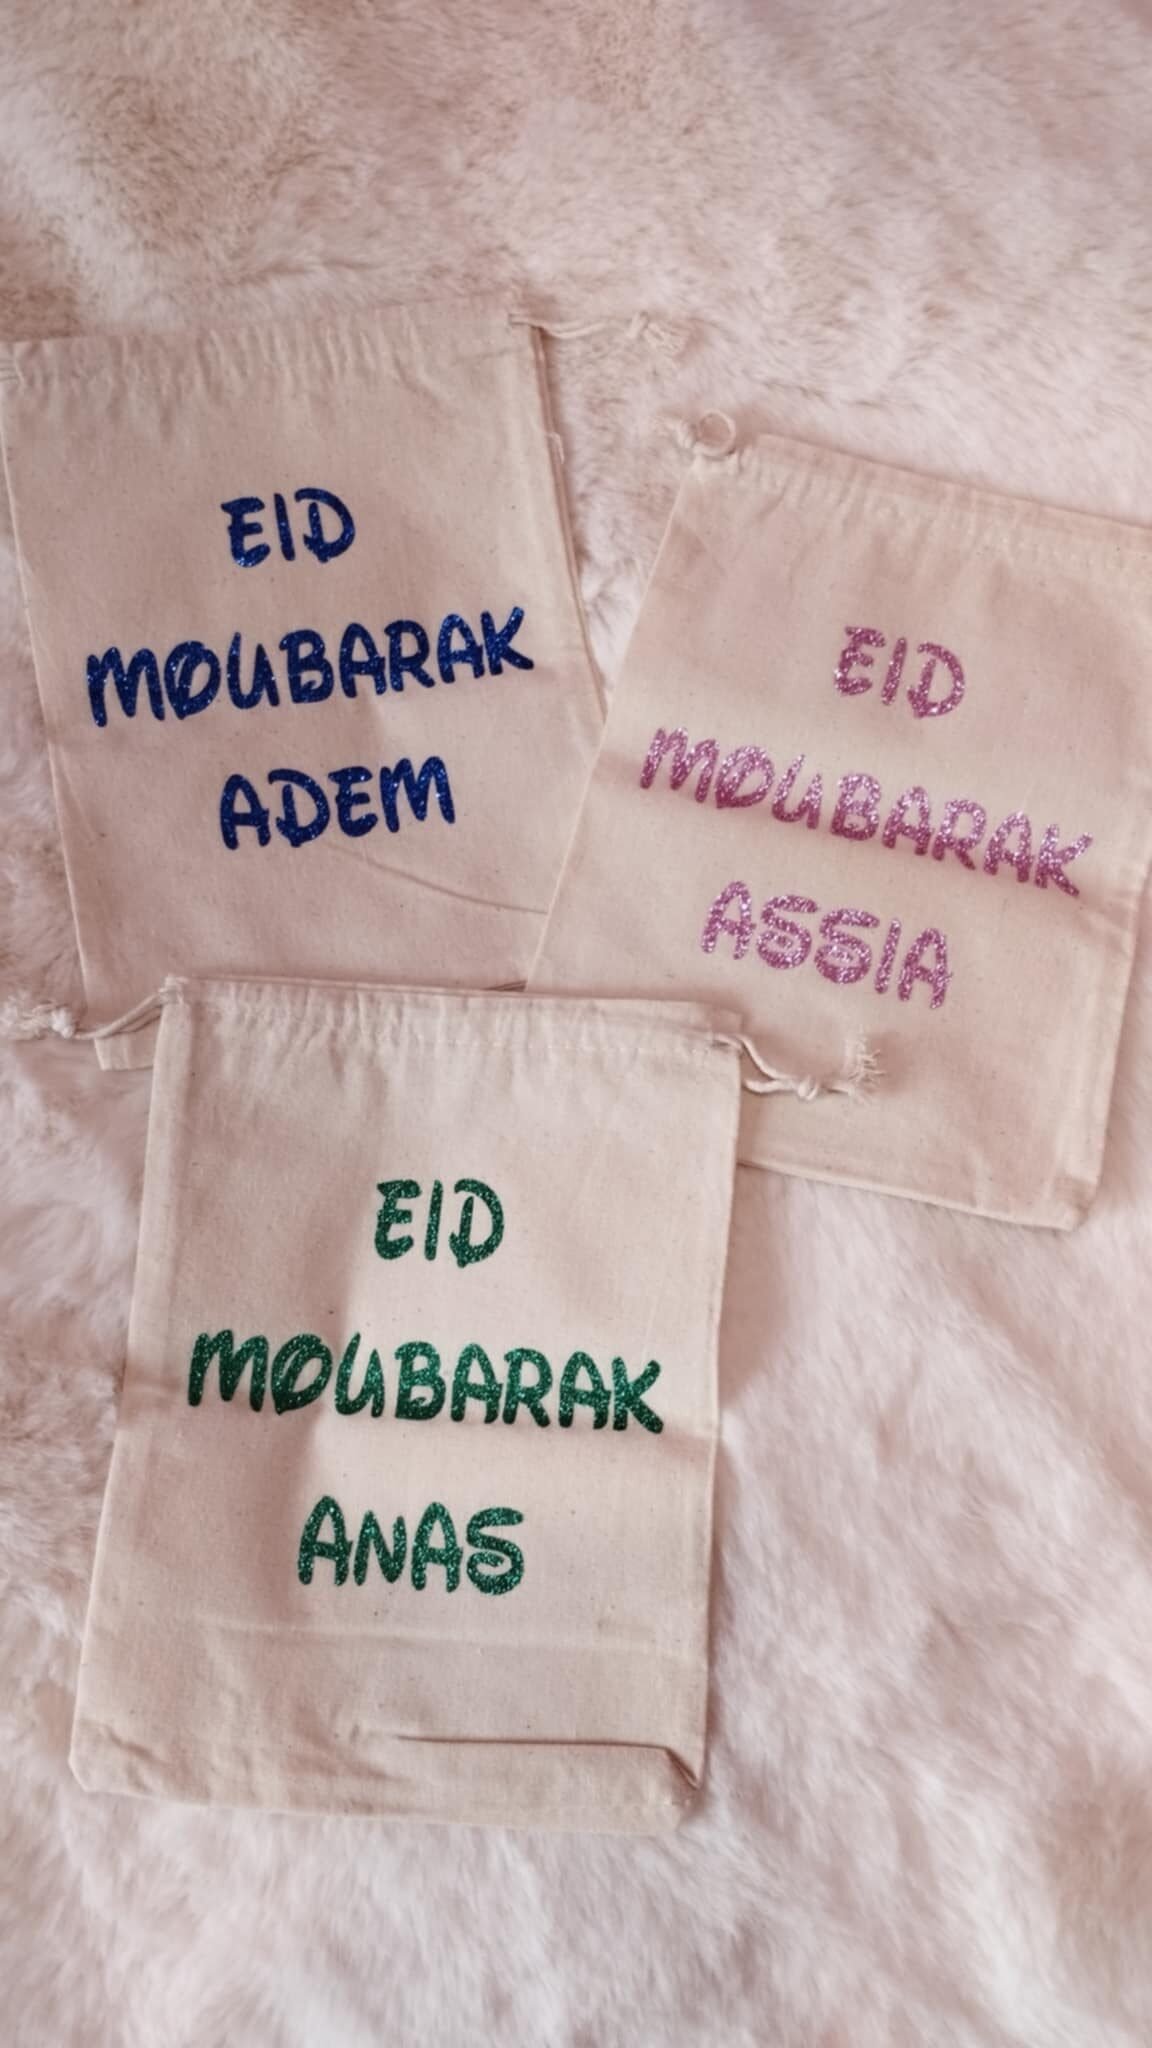 EID
MOUBARAK
ADEM
EID
MOUBARAK
ASSIA
EID
MOUBARAK
ANAS